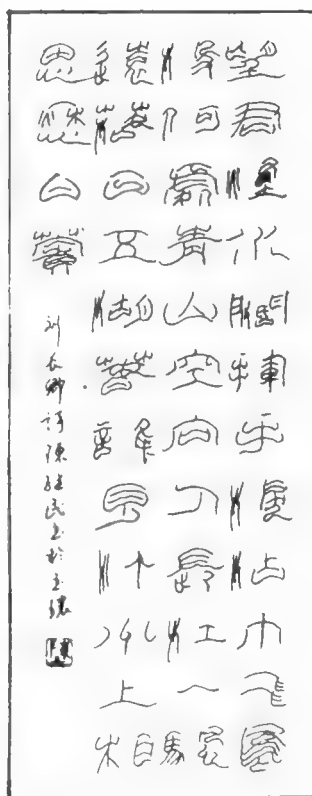 望君煙水闊揮手淚沾巾飛鳥
没何處青山空向人長江一帆
遠落日五湖春誰見汀洲上相
思愁白蘋
刘长卿诗陈民书於玉环